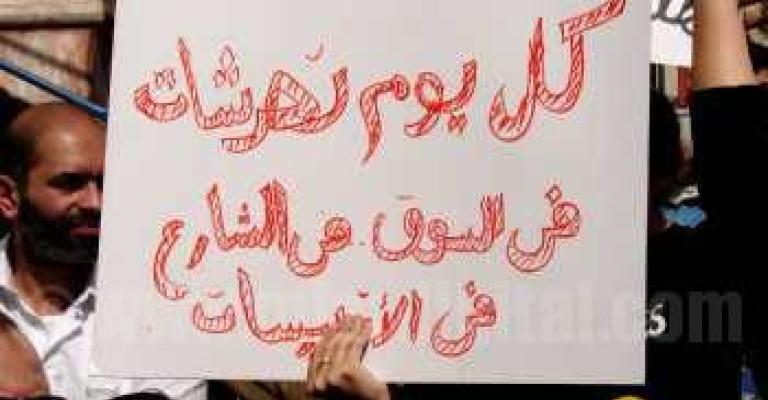 كل يوم تحرشات
في السوق. في الشارع
في الأتبيسات